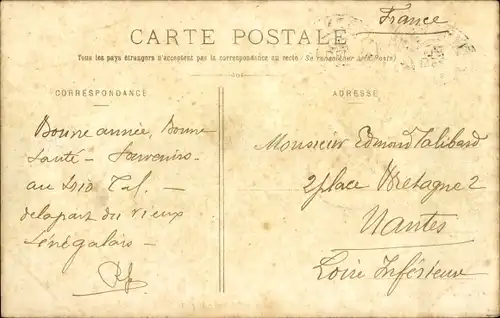 France
CARTE POSTALE
Tous les pays étrangers n'acceptent pas la correspondance au recto (Se renseigner à la Poste)
CORRESPONDANCE
Bonne année, Bonne
Santé - Souvenirs -
au
de la part du vieux
Sénégalais -
ADRESSE
Monsieur Edmond Talibard
2 place Bretagne 2
Nantes
Loire Inférieure